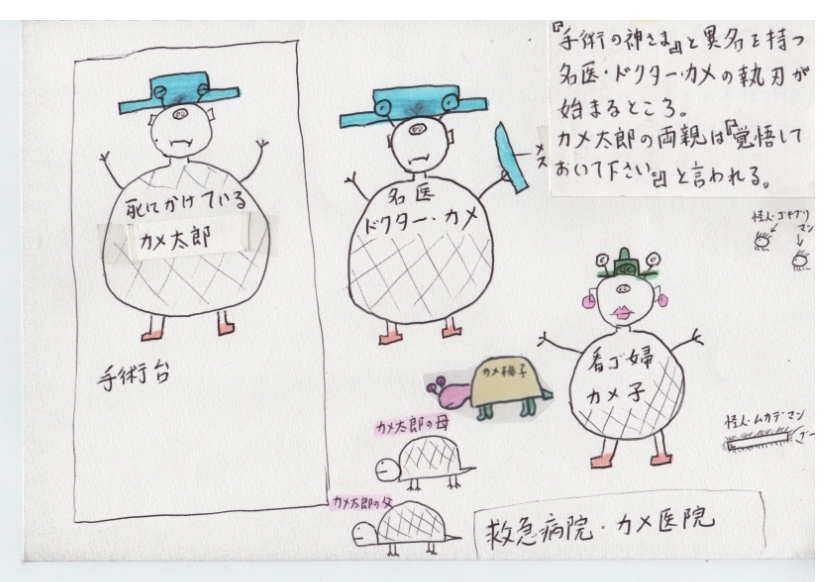 『手術の神さま』と異名を持つ
名医・ドクター・カメの執刀が
始まるところ。
カメ太郎の両親は『覚悟して
おいて下さい。』と言われる。
死にかけている
カメ太郎
手術台
名医
ドクター・カメ
メス
怪人・ゴキブリ
マン
看ゴ婦
カメ子
カメ太郎の母
カメ太郎の父
怪人・ムカデマン
救急病院・カメ医院